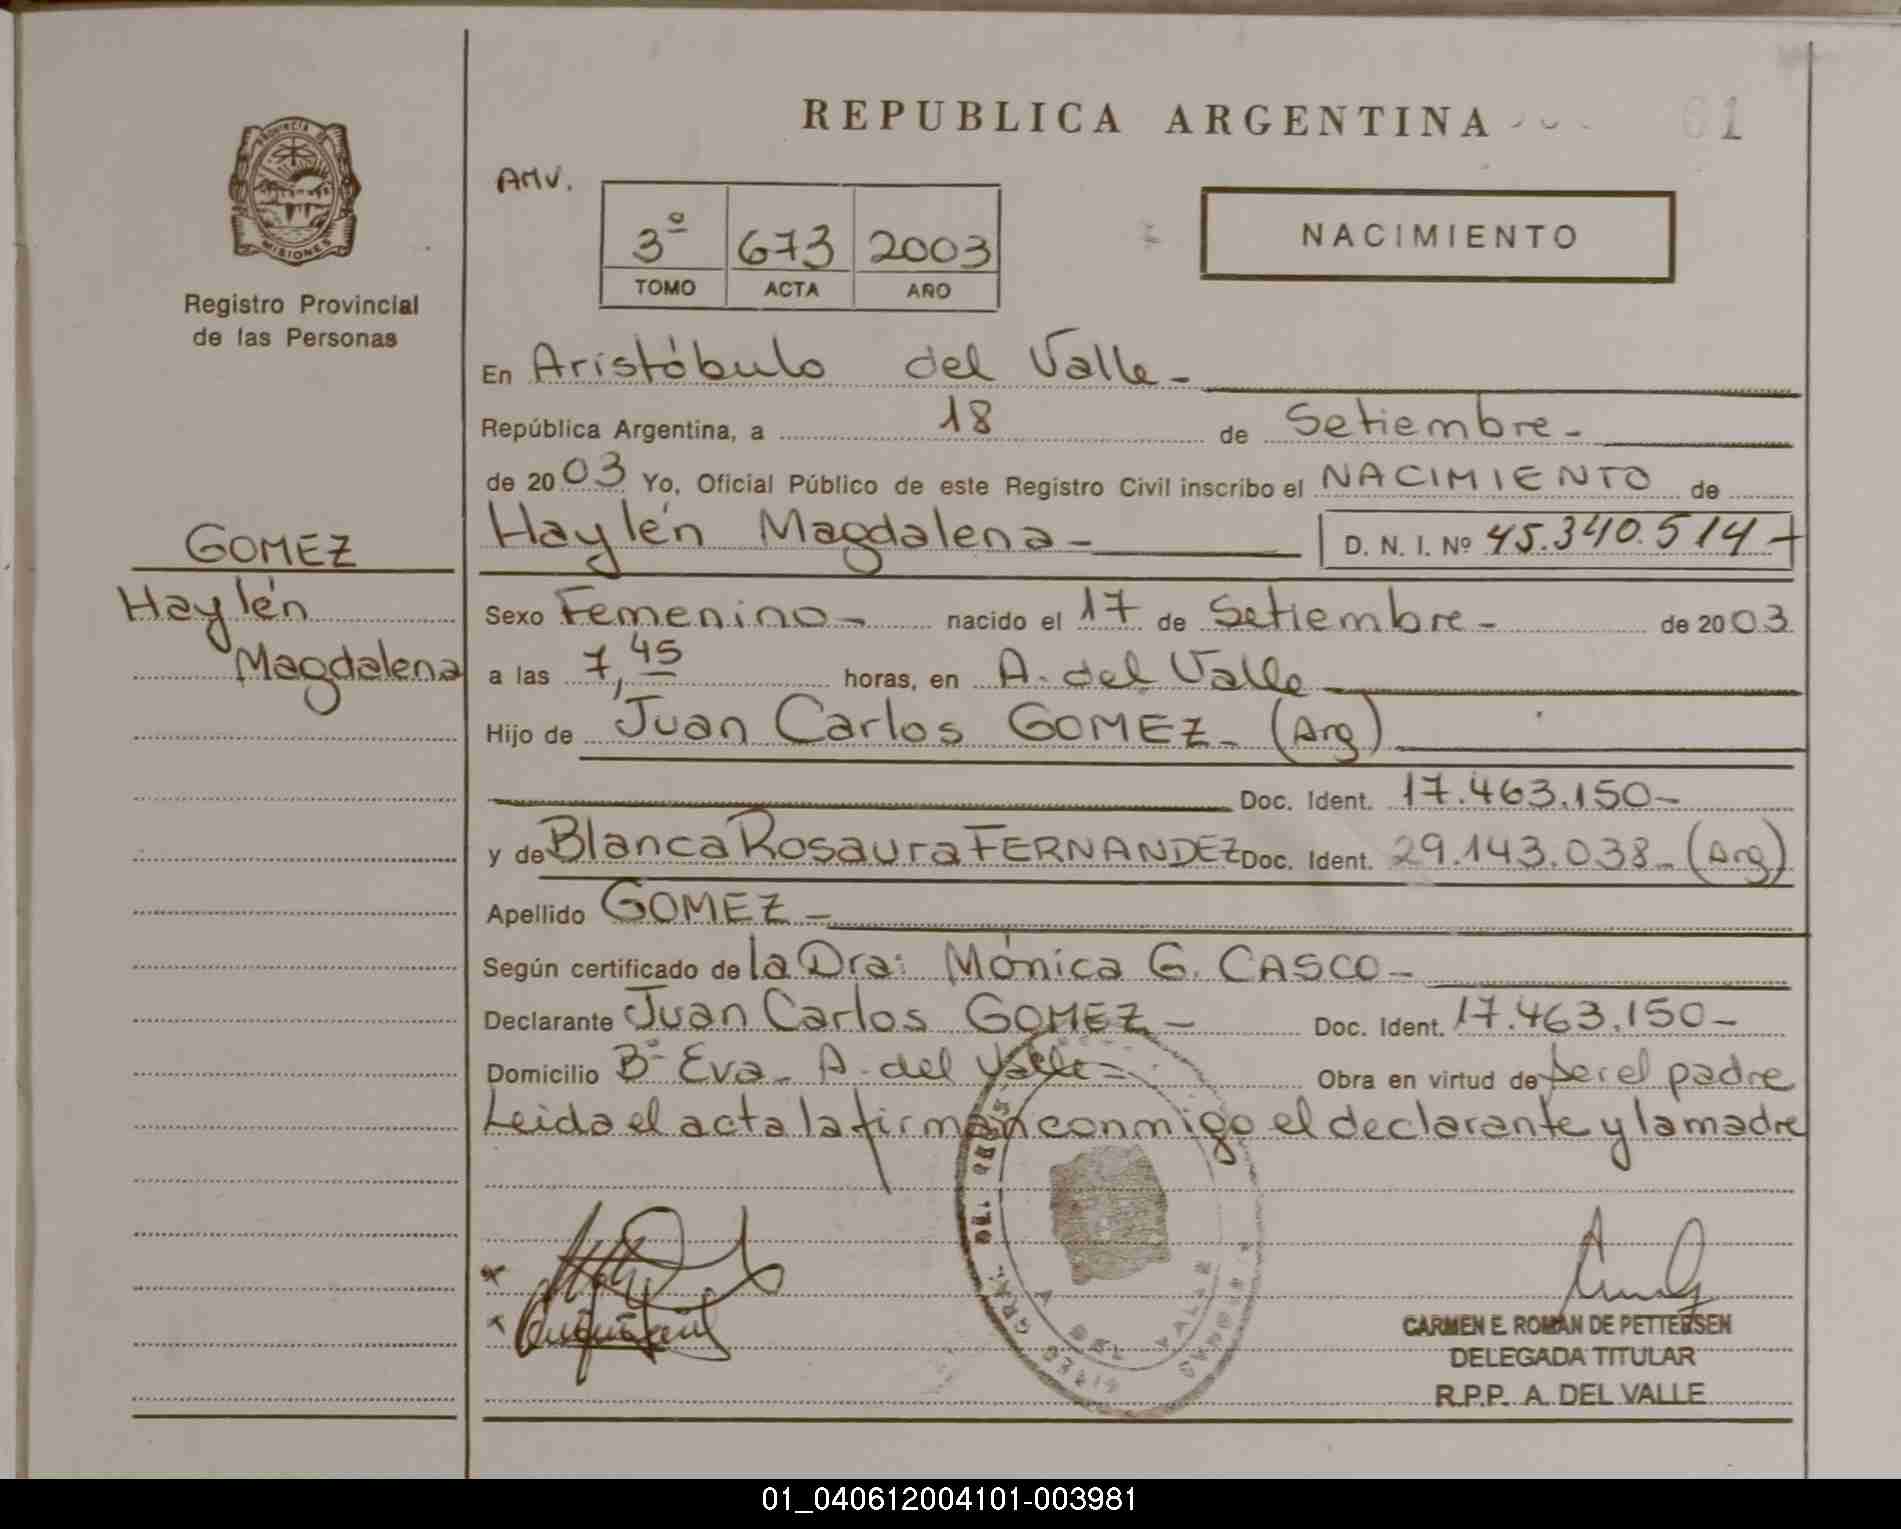 REPUBLICA ARGENTINA
01
PROVINCIA DE
MISIONES
Registro Provincial
de las Personas
AMV.
3º 673 2003
TOMO ACTA AÑO
NACIMIENTO
En Aristóbulo del Valle -
República Argentina, a 18 de Setiembre -
de 2003 Yo, Oficial Público de este Registro Civil inscribo el NACIMIENTO de
Haylén Magdalena - D. N. I. Nº 45.340.514 -
GOMEZ
Haylén
Magdalena
Sexo Femenino - nacido el 17 de Setiembre - de 2003
a las 7,45 horas, en A. del Valle
Hijo de Juan Carlos GOMEZ - (Arg)
Doc. Ident. 17.463.150 -
y de Blanca Rosaura FERNANDEZ Doc. Ident. 29.143.038 - (Arg)
Apellido GOMEZ -
Según certificado de la Dra: Mónica G. CASCO -
Declarante Juan Carlos GOMEZ - Doc. Ident. 17.463.150 -
Domicilio Bº Eva - A. del Valle = Obra en virtud de ser el padre
Leida el acta la firman conmigo el declarante y la madre
A DEL VALLE
CARMEN E. ROMAN DE PETTERSEN
DELEGADA TITULAR
R.P.P. A. DEL VALLE
01_040612004101-003981